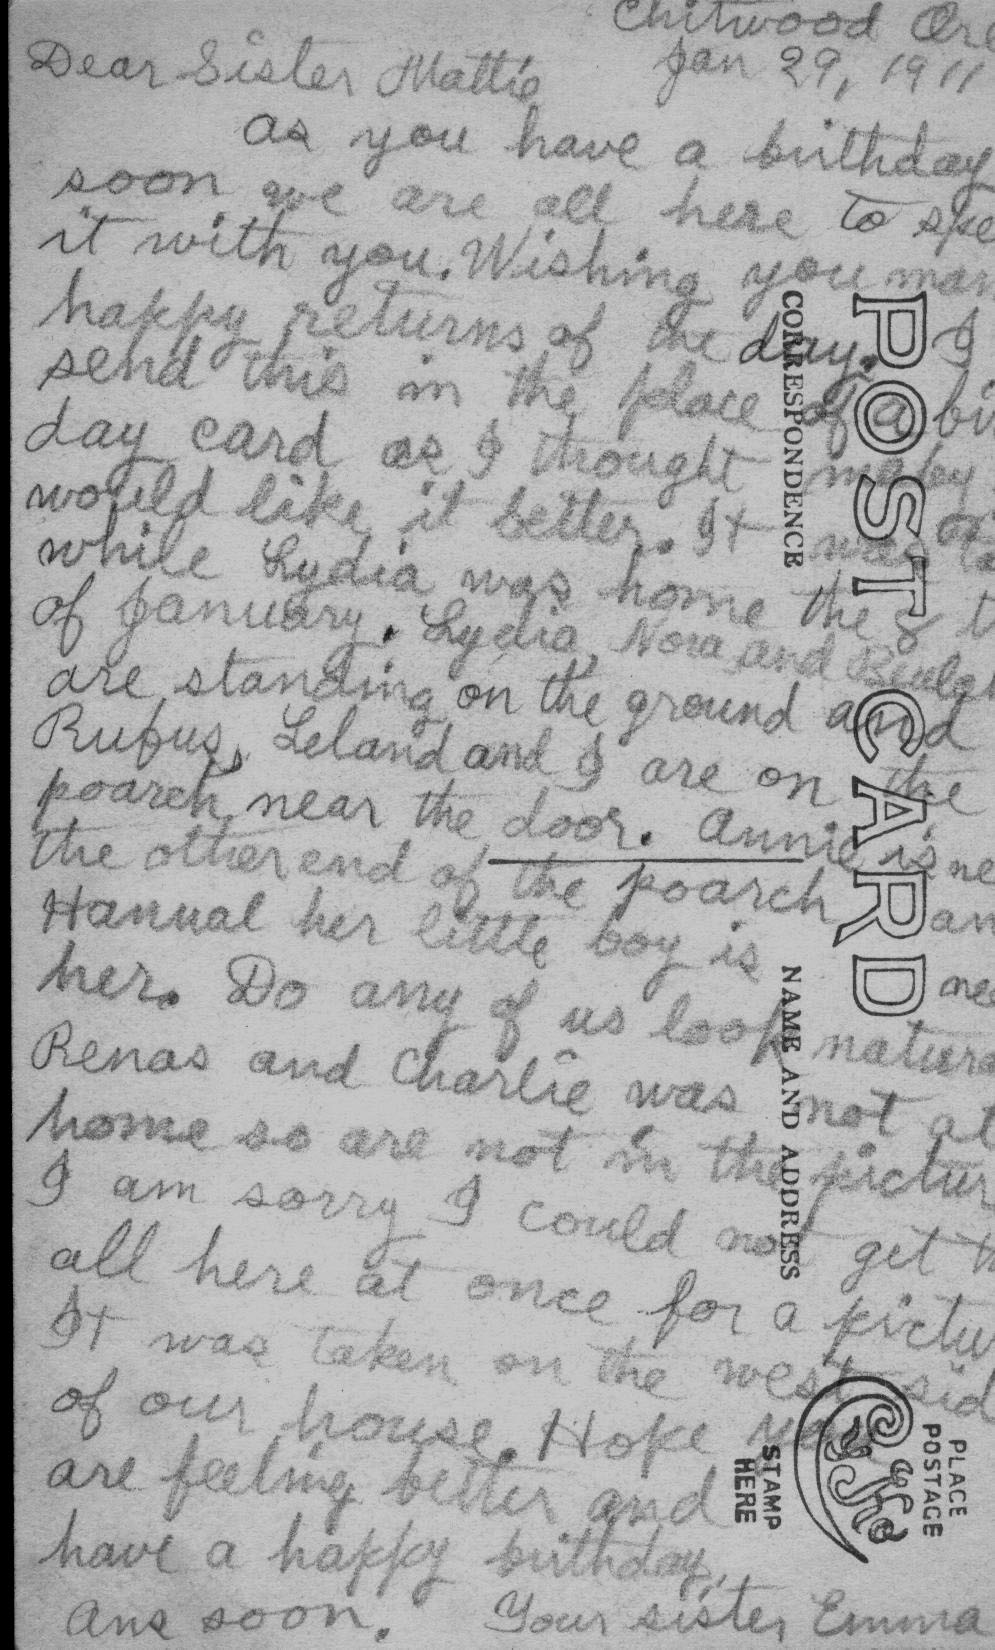 Chitwood Ore
Dear Sister Mattie Jan 29, 1911
as you have a birthday
soon we are all here to spe
it with you. Wishing you man
happy returns of the day. I
send this in the place of a bir
day card as I thought maby
would like it better. It was ta
while Lydia was home the 8 t
of January. Lydia, Nora and Beulah
are standing on the ground and
Rufus, Leland and I are on the
poarch near the door. Annie is ne
the other end of the poarch an
Hanual her little boy is nea
her. Do any of us look natura
Renas and Charlie was not at
home so are not in the pictur
I am sorry I could not get th
all here at once for a pictu
It was taken on the west sid
of our house. Hope you
are feeling better and
have a happy birthday,
Ans soon. Your sister Emma
POST CARD
CORRESPONDENCE
NAME AND ADDRESS
PLACE
POSTAGE
STAMP
HERE